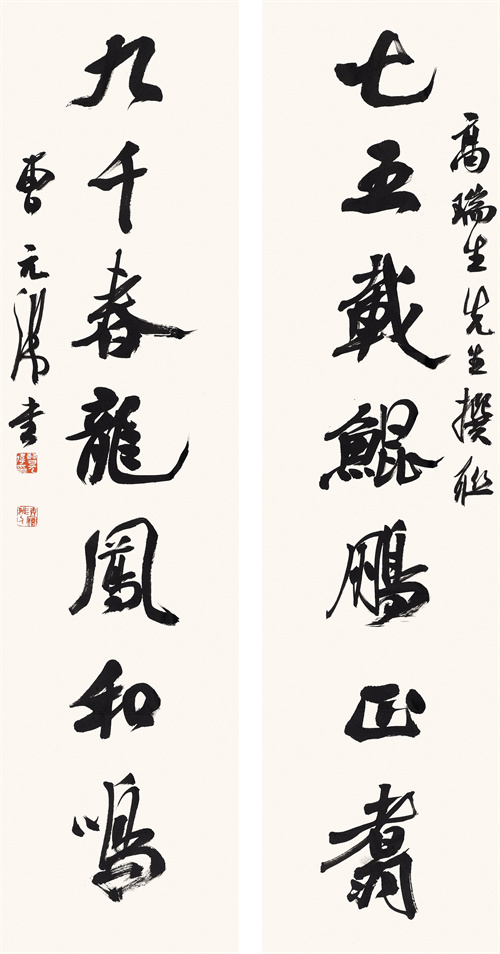 高瑞生先生撰联
七五載鯤鵬正翥
九千春龍鳳和鳴
曹元書